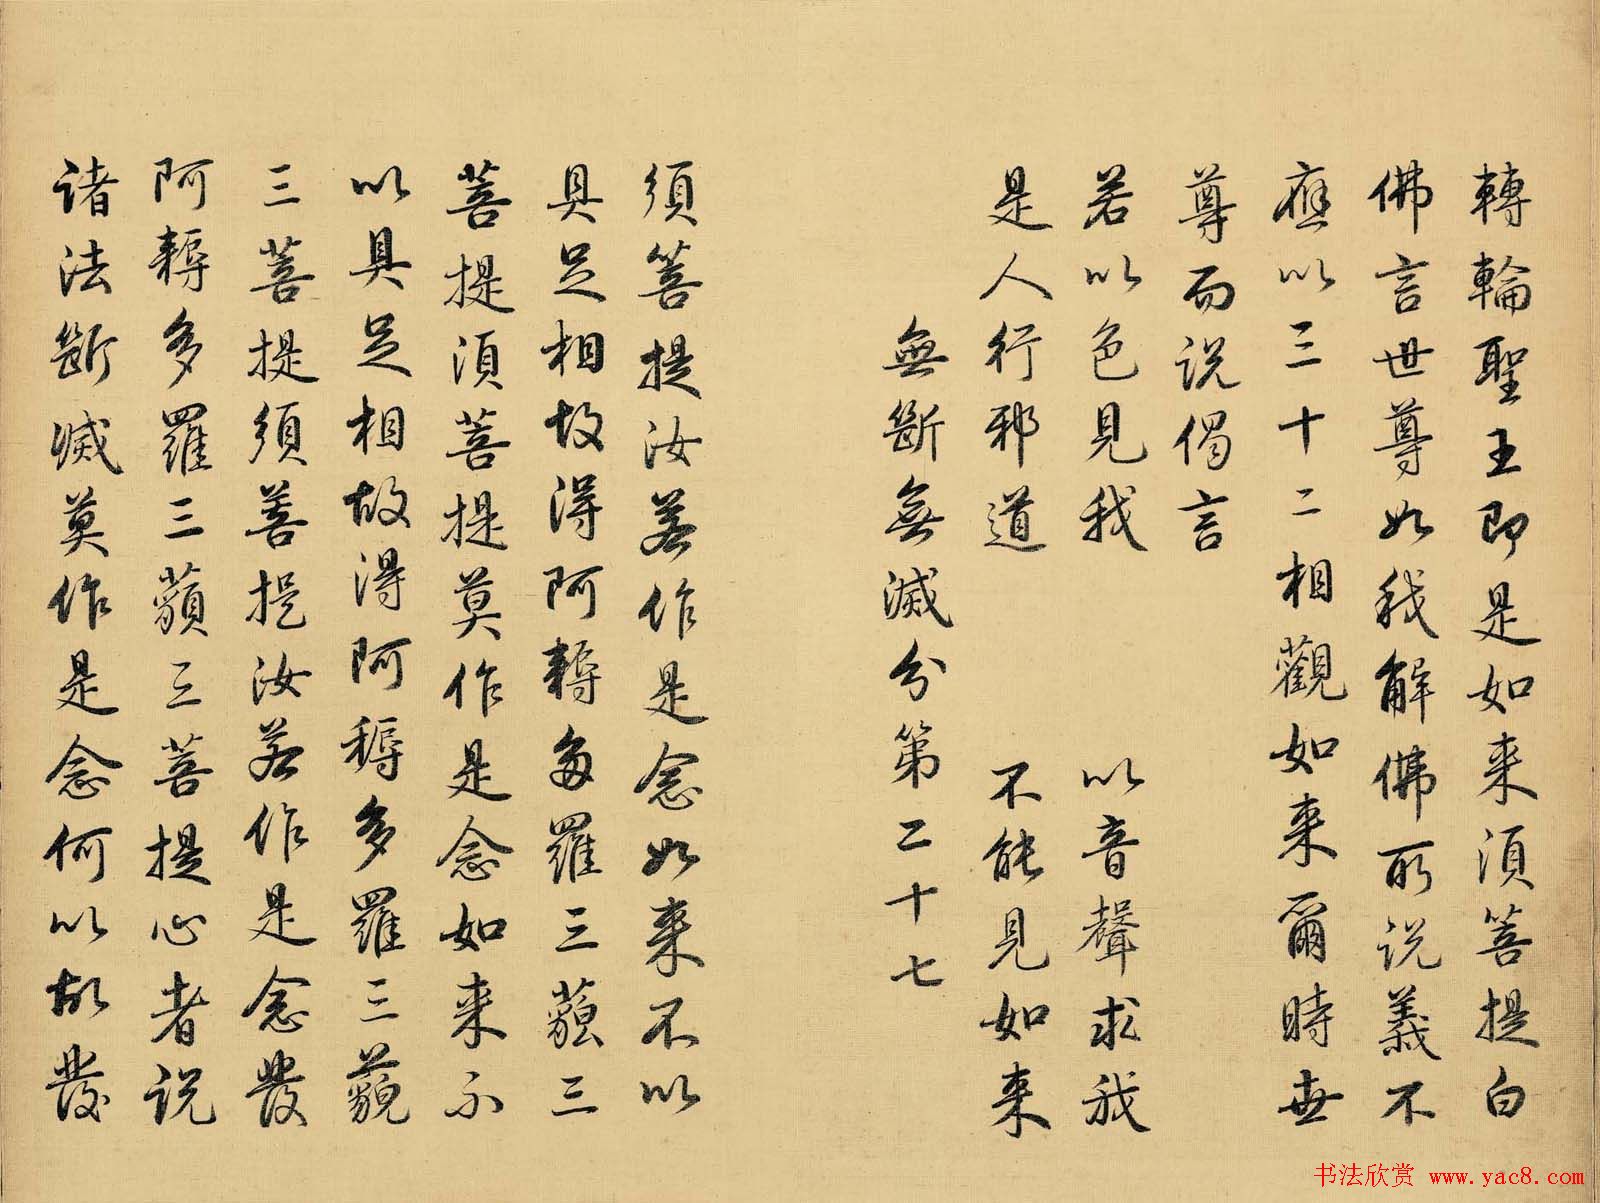 轉輪聖王即是如来須菩提白
佛言世尊如我解佛所说義不
應以三十二相觀如来爾時世
尊而说偈言
若以色見我 以音聲求我
是人行邪道 不能見如来
無斷無滅分第二十七
須菩提汝若作是念如来不以
具足相故得阿耨多羅三藐三
菩提須菩提莫作是念如来不
以具足相故得阿耨多羅三藐
三菩提須菩提汝若作是念發
阿耨多羅三藐三菩提心者说
诸法斷滅莫作是念何以故發
书法欣赏 www.yac8.com